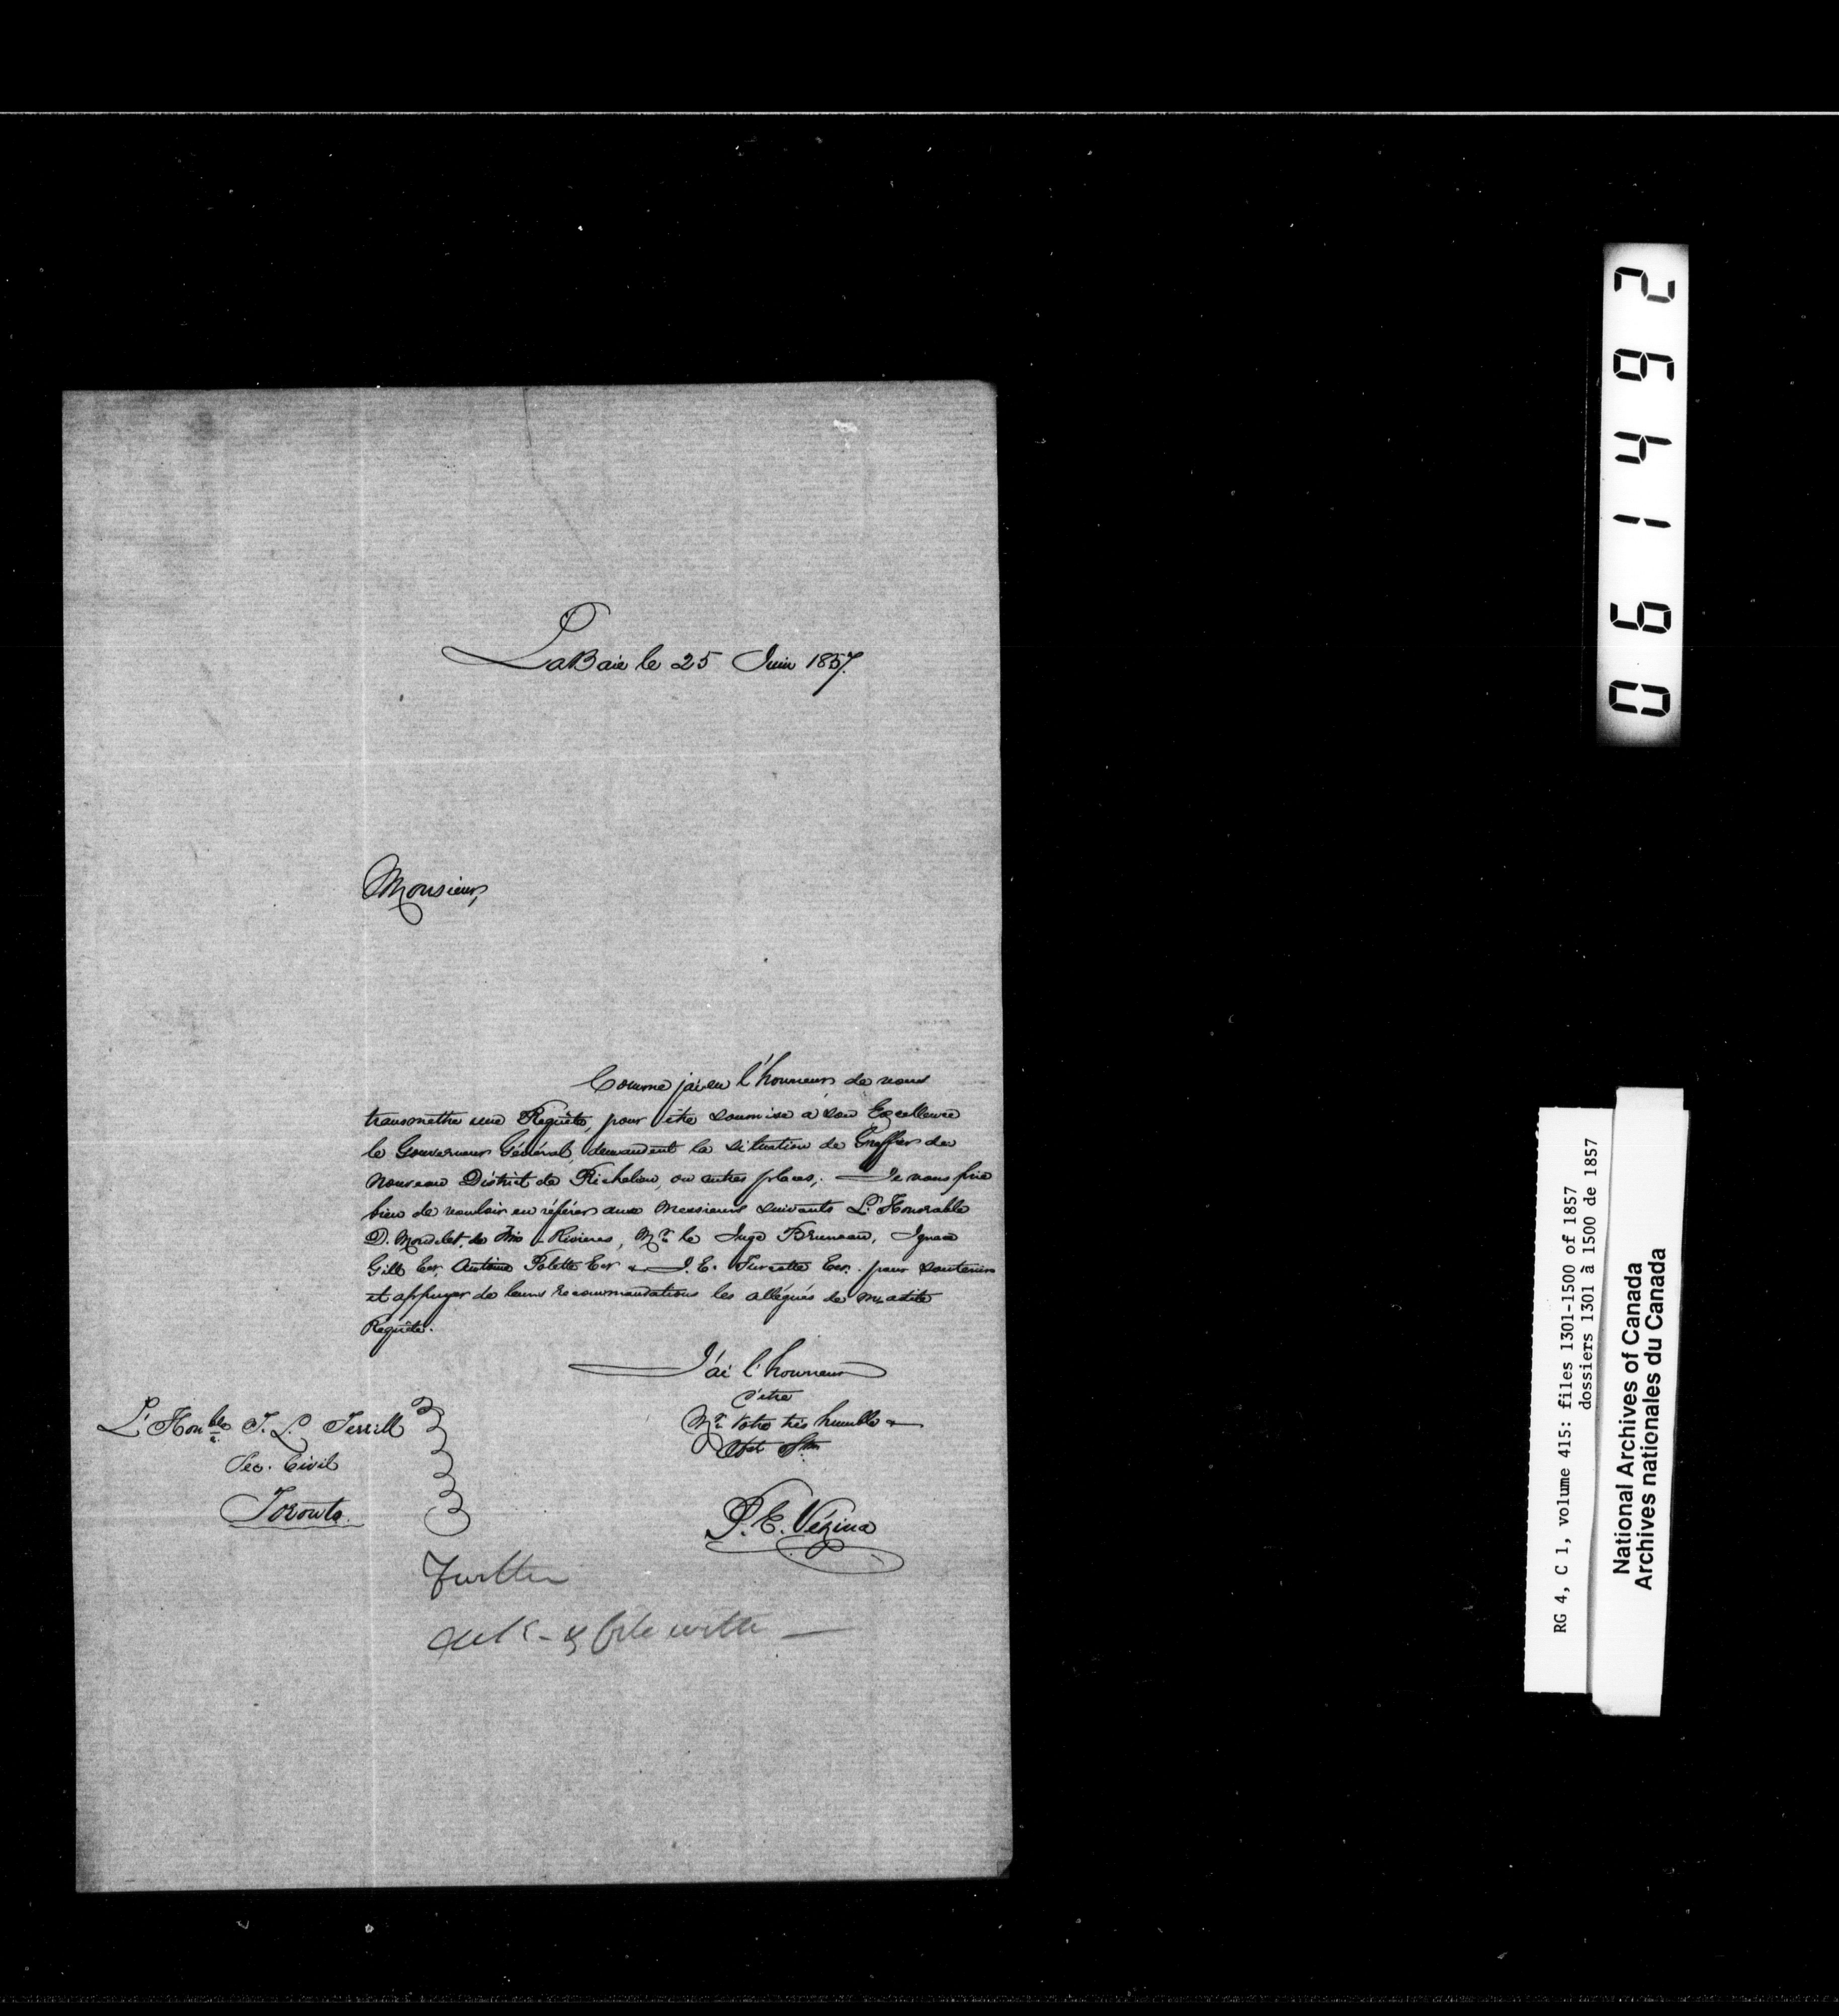 LaBaie le 25 Juin 1857.
Monsieur,
Comme j'ai eu l'honneur de vous
transmettre une Requête, pour être soumise à Son Excellence
le Gouverneur Général, demandent la situation de Greffier du
nouveau District de Richelieu, ou autres places, Je vous prie
bien de vouloir en référer aux Messieurs suivants L'Honorable
D. Mondelet, de Trois-Rivieres, Mr. le Juge Bruneau, Ignace
Gill Ecr, Antoine Polette Ecr & J. E. Turcotte Ecr. pour soutenir
et appuyer de leurs recommandations les allégués de madite
Requête.
J'ai l'honneur
d'être
Mr. Votre très humble &
Obt. Str.
P. E. Vézina
L'Honble T. L. Terrill
Sec. Civil
Toronto.
Further
ack - & file with
061492
RG 4, C 1, volume 415: files 1301-1500 of 1857
dossiers 1301 à 1500 de 1857
National Archives of Canada
Archives nationales du Canada